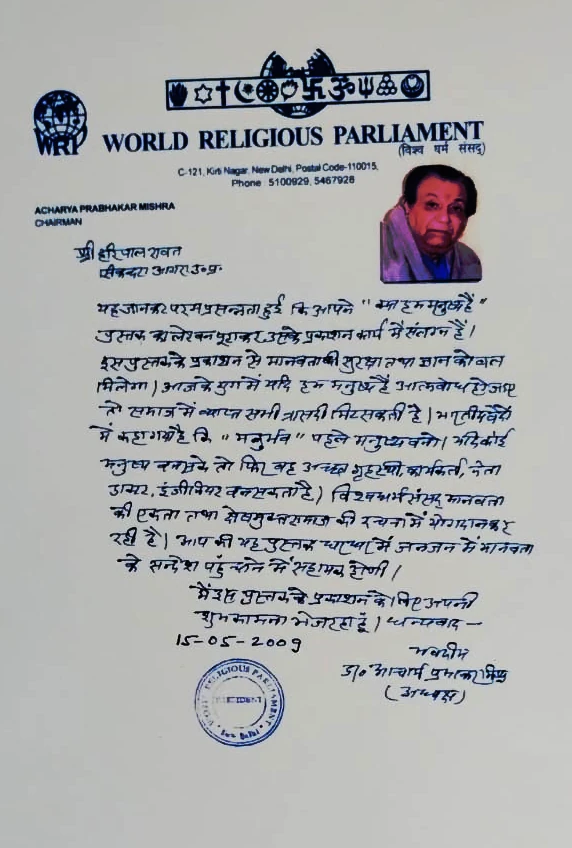 WRP
WORLD RELIGIOUS PARLIAMENT
(विश्व धर्म संसद)
C-121, Kirti Nagar, New Delhi, Postal Code-110015,
Phone : 5100929, 5467928
ACHARYA PRABHAKAR MISHRA
CHAIRMAN
श्री हरिपाल रावत
सिकन्दरा आगरा उ.प्र.
यह जानकर परम प्रसन्नता हुई कि आपने "क्या हम मनुष्य हैं"
पुस्तक का लेखन पूराकर उसके प्रकाशन कार्य में संलग्न हैं।
इस पुस्तक के प्रकाशन से मानवता की सुरक्षा तथा ज्ञान को बल
मिलेगा। आज के युग में यदि हम मनुष्य हैं आत्मबोध हो जाए
तो समाज में व्याप्त सभी त्रासदी मिट सकती है। भारतीय वेदों
में कहा गया है कि "मनुर्भव" पहले मनुष्य बनो। यदि कोई
मनुष्य बन सके तो फिर वह अच्छा गृहस्थी, कार्यकर्ता, नेता
डाक्टर, इंजीनियर बन सकता है। विश्व धर्म संसद मानवता
की एकता तथा समाज की रचना में योगदान कर
रही है। आप की यह पुस्तक में जनजन में मानवता
के सन्देश पहुंचाने में सहायक होगी।
मैं इस पुस्तक के प्रकाशन के लिए अपनी
शुभकामना भेज रहा हूं। धन्यवाद —
15-05-2009
भवदीय
डा० आचार्य प्रभाकर मिश्र
(अध्यक्ष)
RELIGIOUS PARLIAMENT
PRESIDENT
New Delhi